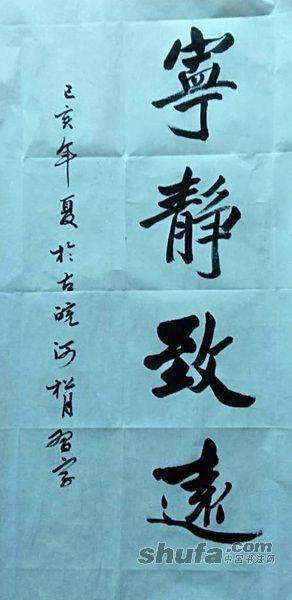 寧靜致遠
己亥年夏於古皖河松月習字
shufa.com
中国书法网